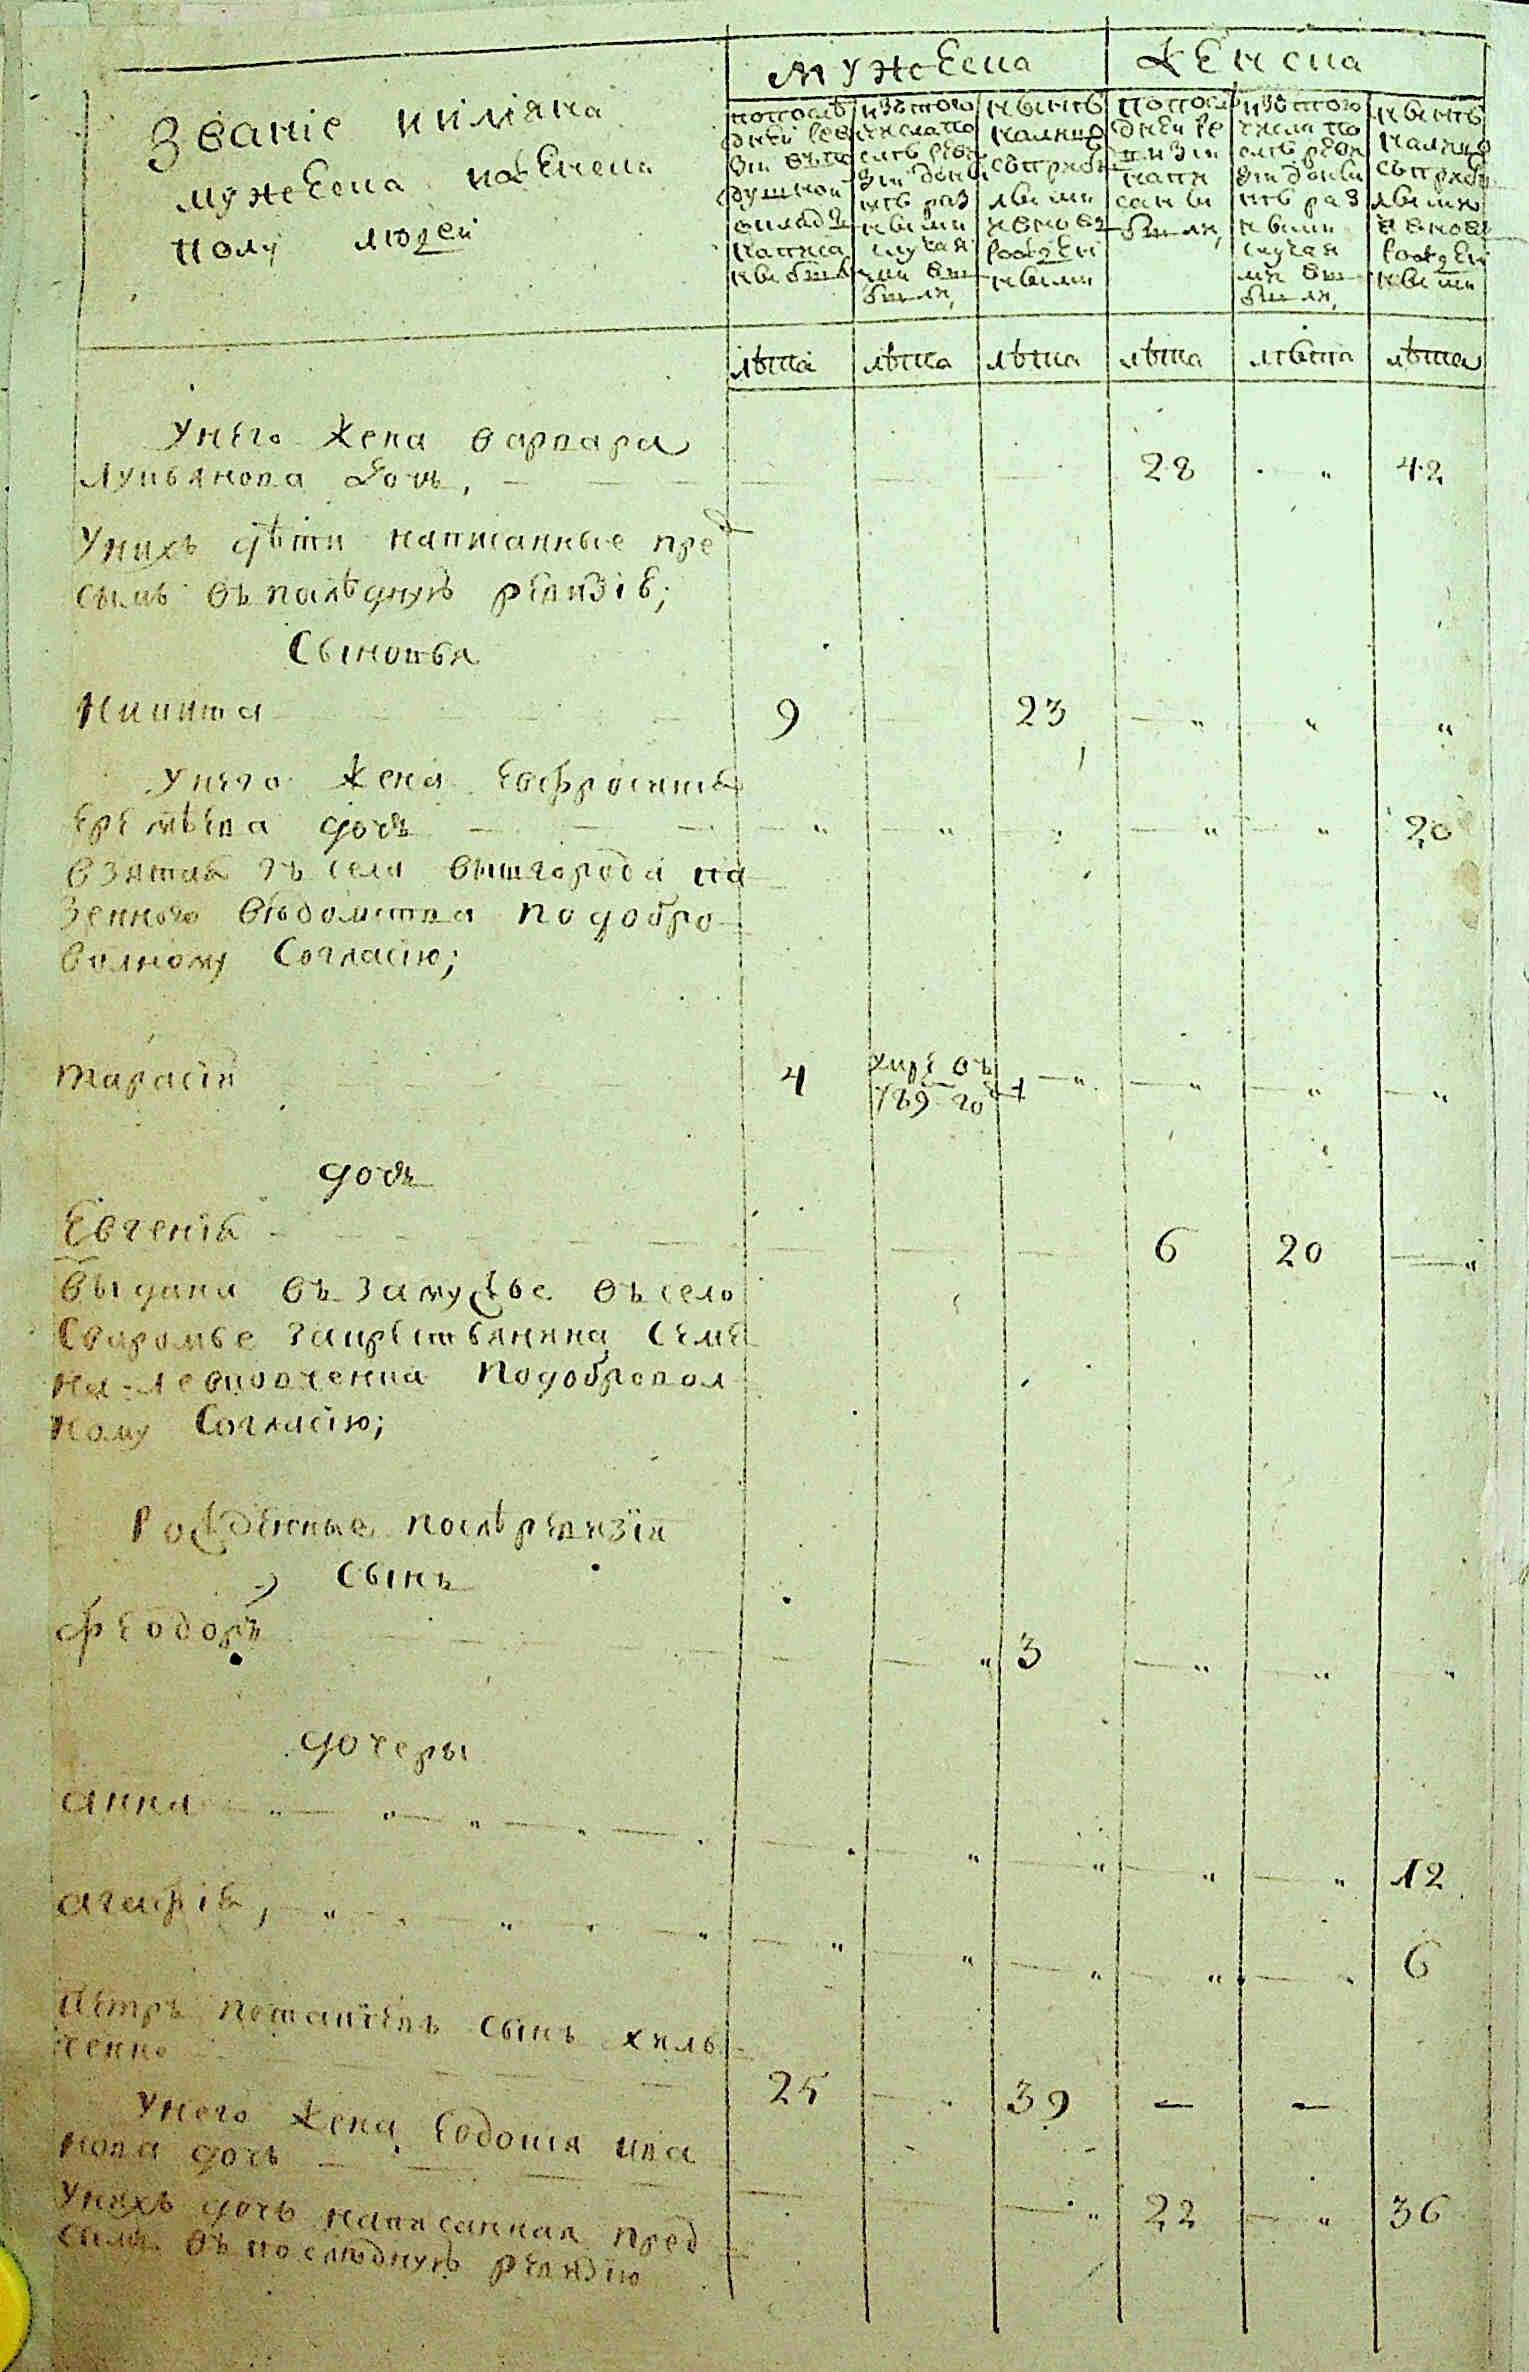 мужеска женска
Званіе и имяна
мужеска и женска
полу людей
попослѣдней ревизіи въ подушной окладъ написаны были
изъ того числа послѣ ревизіи донынѣ разными случаями выбыли,
нынѣ на лицо съ прибылыми и вновь рожденными
попослѣдней ревизіи написаны были,
изъ того числа послѣ ревизіи донынѣ разными случаями выбыли,
нынѣ на лицо съ прибылыми и вновь рожденными
лѣта лѣта лѣта лѣта лѣта лѣта
Унего жена варвара
Лукьянова дочь, 28 42
Унихъ дѣти написанные пред
симъ въ послѣдную ревизію;
Сыновья
Никита 9 23
Унего жена Евфросинія
Еремѣева дочь 20
взятая зъ села вышгорода ка
зенного вѣдомства по добро
волному Согласію;
Тарасій 4 умре въ
789 год
дочь
Евгенія 6 20
выдана въ замужье въ село
Сваромье за крестьянина Семе
на Левковченка подобровол
ному Согласію;
Рожденные послѣ ревизіи
Сынъ
Феодоръ 3
дочеры
анна 12
агафія, 6
Петръ Потапіевъ сынъ хиль
ченко 25 39
Унего жена Евдокія ива
нова дочь 22 36
Унихъ дочь написанная пред
симъ въ послѣдную ревизію